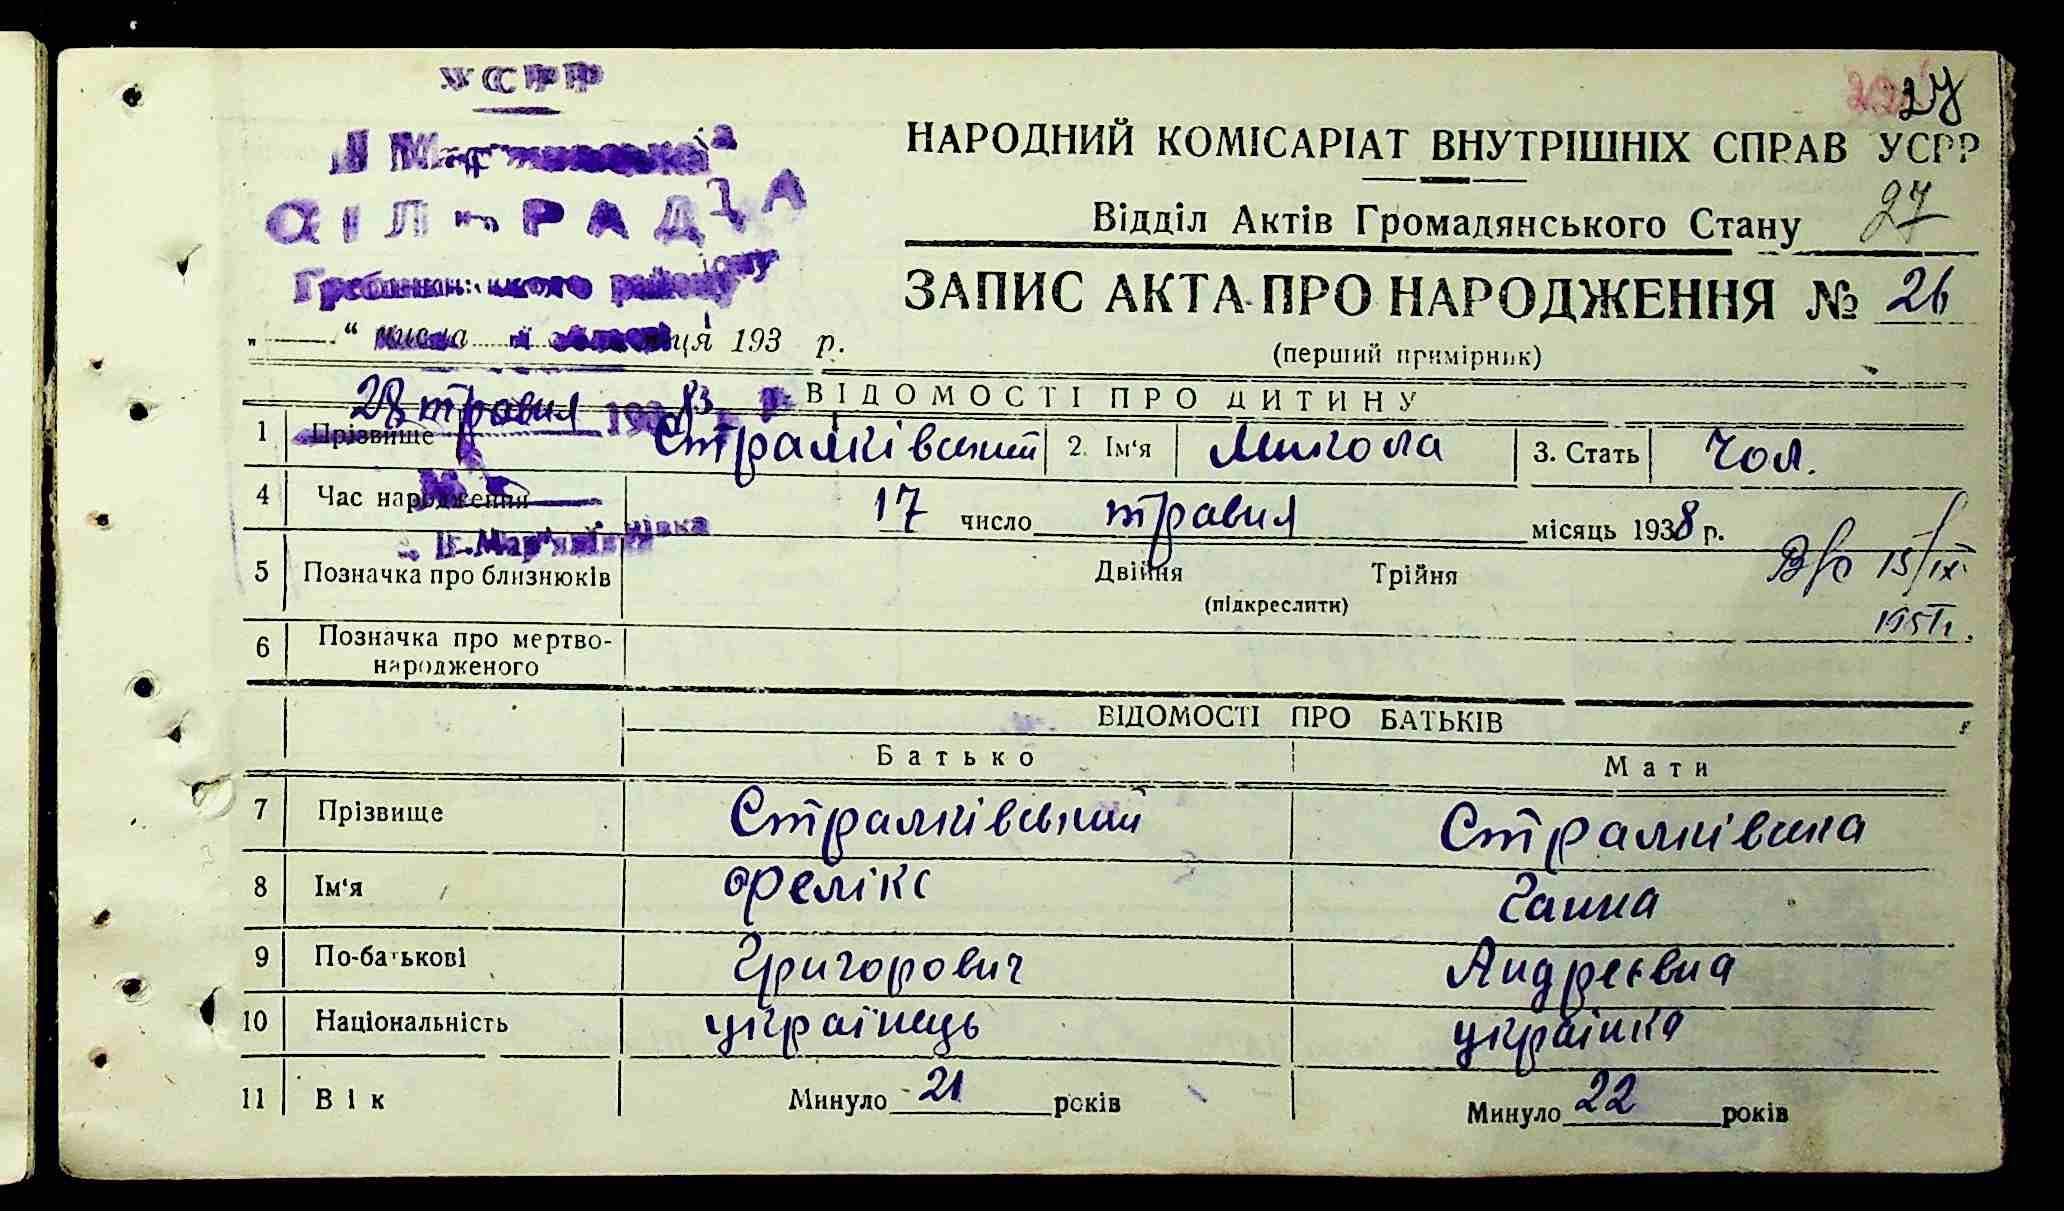 УСРР
СІЛЬРАДА
27
НАРОДНИЙ КОМІСАРІАТ ВНУТРІШНІХ СПРАВ УСРР
Відділ Актів Громадянського Стану 27
ЗАПИС АКТА ПРО НАРОДЖЕННЯ № 26
(перший примірник)
193 р.
28 травня
ВІДОМОСТІ ПРО ДИТИНУ
1 Прізвище Стралківський 2. Ім'я Микола 3. Стать Чол.
4 Час народження 17 число травня місяць 1938 р.
5 Позначка про близнюків Двійня Трійня
(підкреслити)
15/IX
6 Позначка про мертво-
народженого
ВІДОМОСТІ ПРО БАТЬКІВ
Батько Мати
7 Прізвище Стралківський Стралківська
8 Ім'я Фелікс Ганна
9 По-батькові Григорович Андреєвна
10 Національність українець українка
11 Вік Минуло 21 років Минуло 22 років